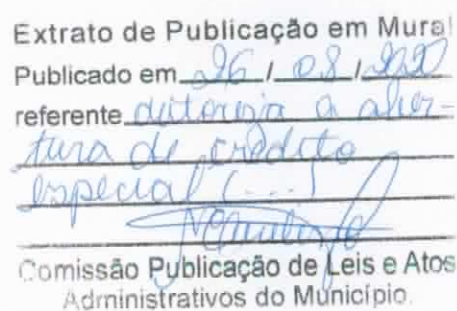 Extrato de Publicação em Mural
Publicado em 26 / 08 / 2020
referente autoriza a aber-
tura de crédito
especial (...)
Comissão Publicação de Leis e Atos
Administrativos do Município.